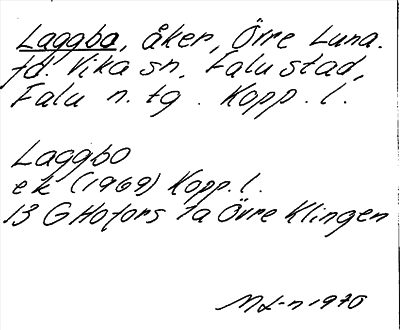 Laggbo, åker, Övre Luna.
fd. Vika sn, Falu stad,
Falu n. tg. Kopp. l.
Laggbo
ek (1969) Kopp. l.
13 G Hofors 7a Övre Klingen
1970